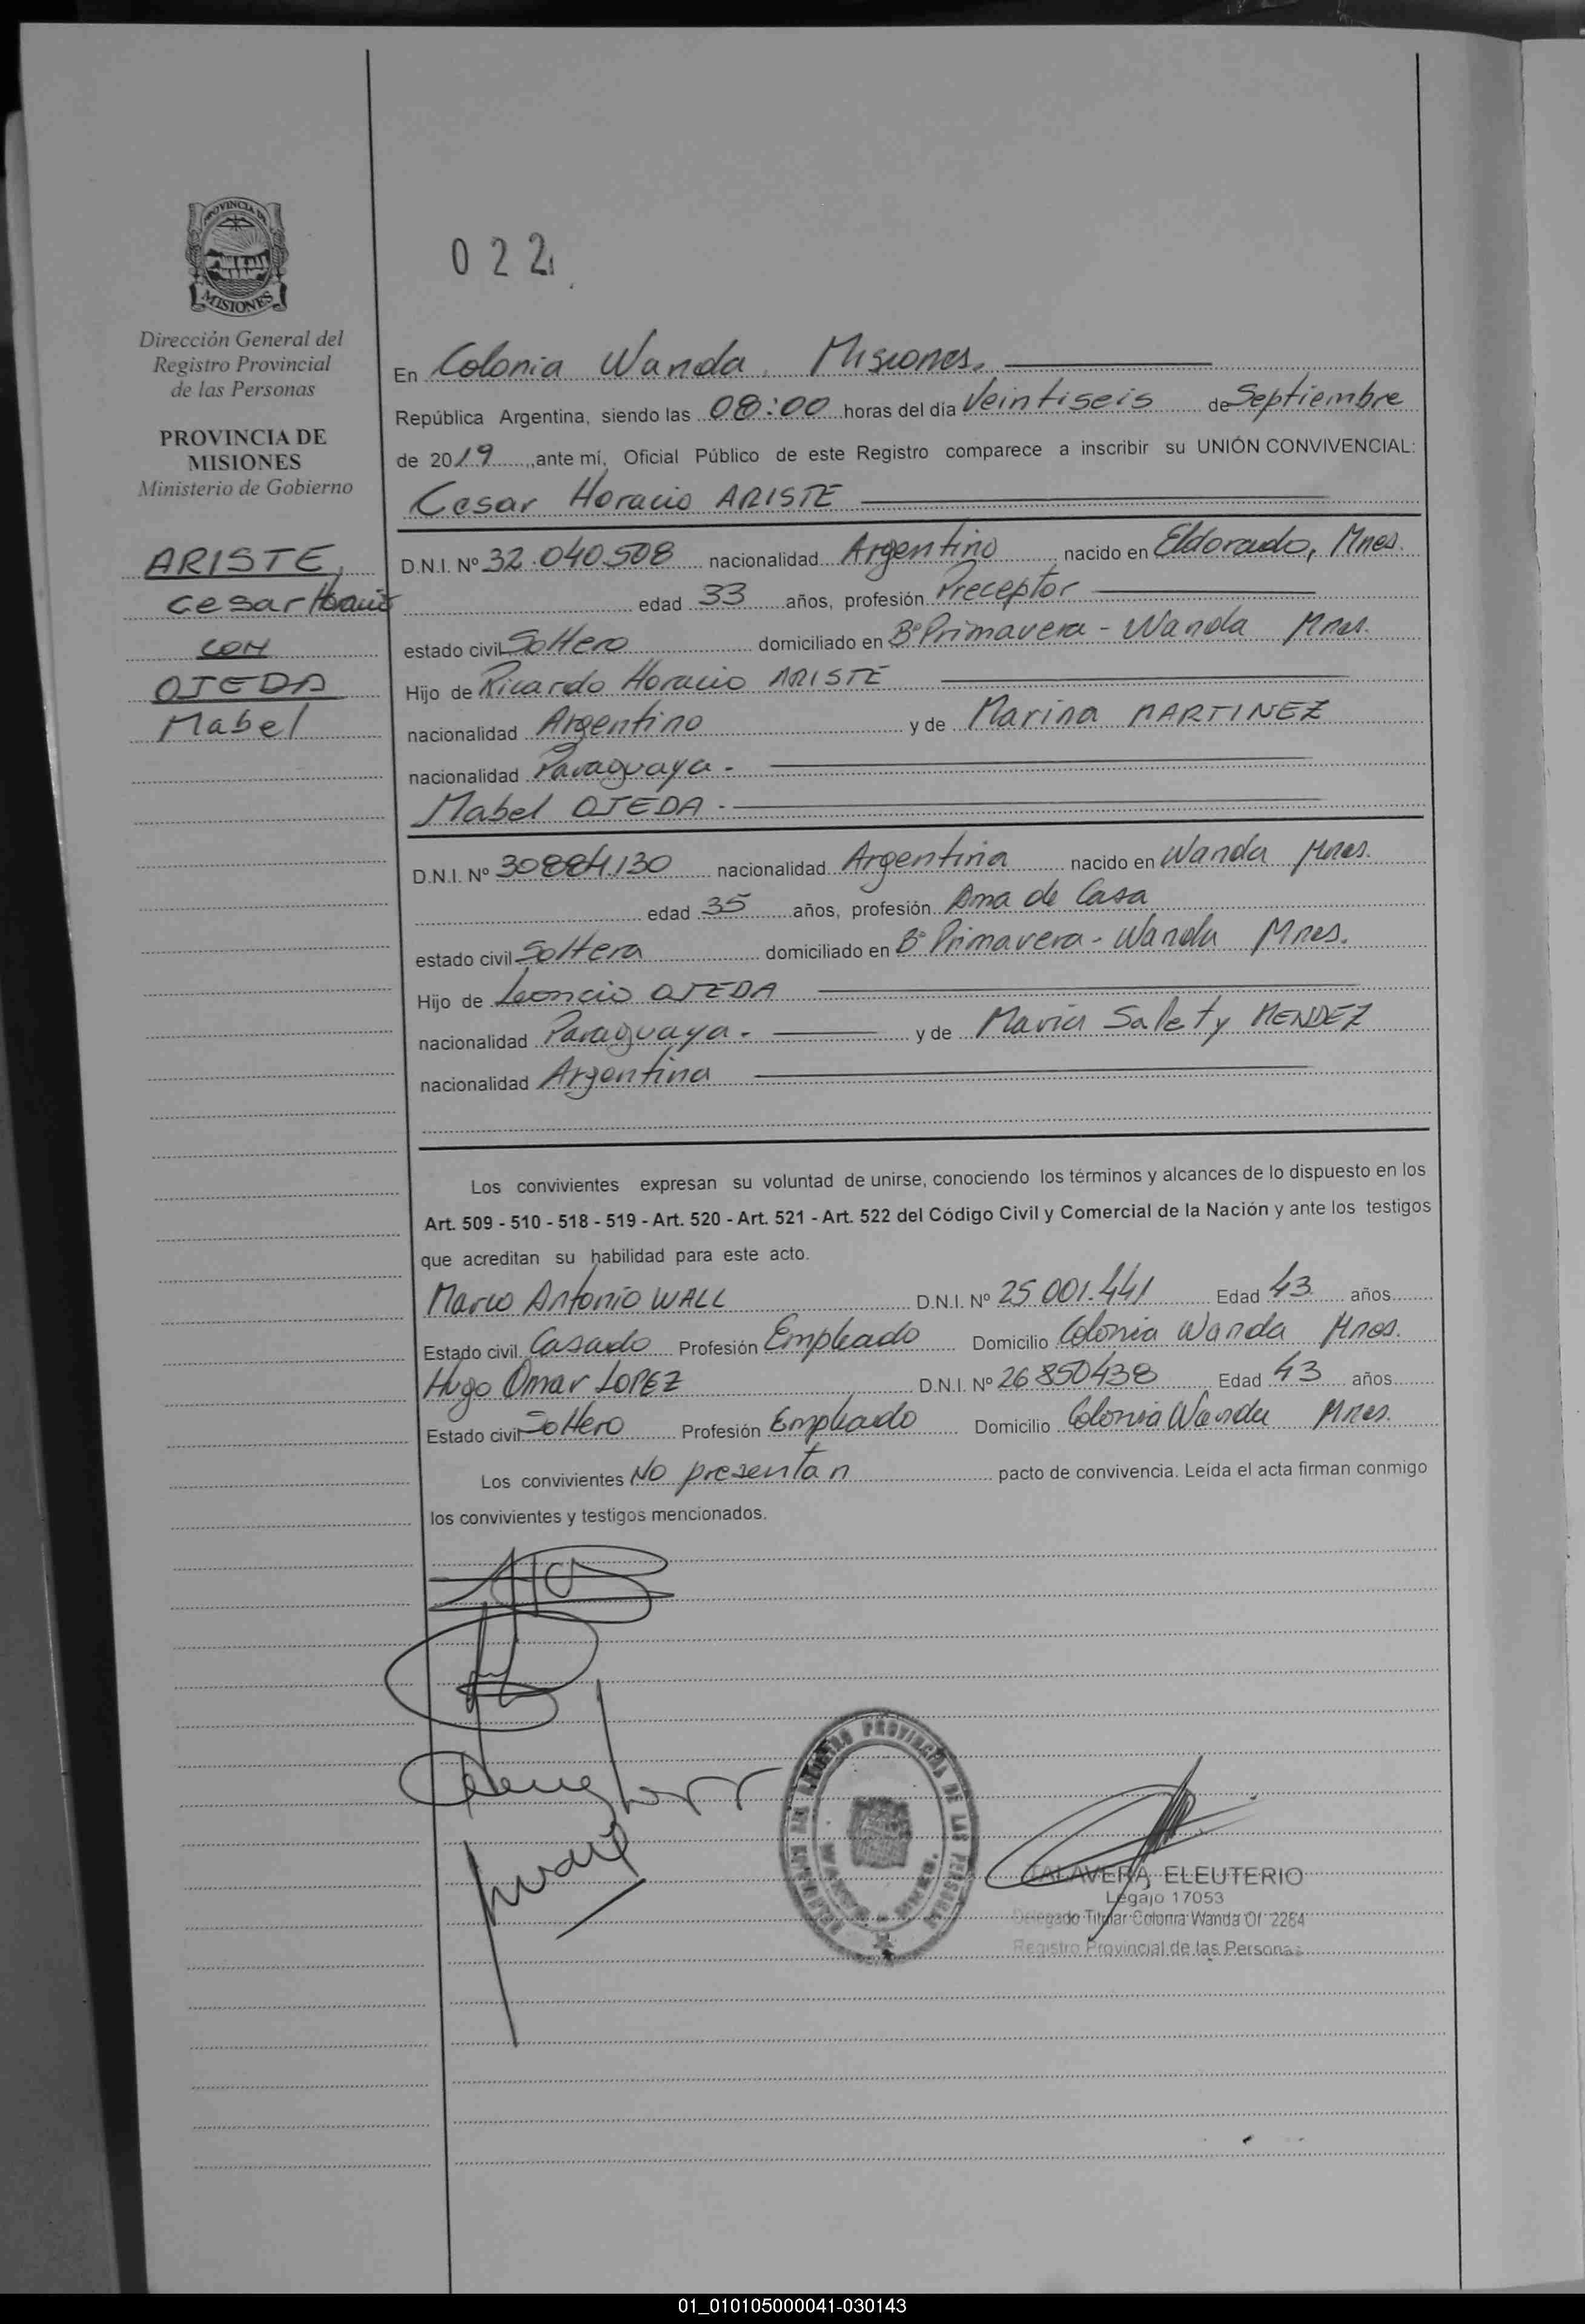 PROVINCIA DE
MISIONES
Dirección General del
Registro Provincial
de las Personas
PROVINCIA DE
MISIONES
Ministerio de Gobierno
ARISTE,
Cesar Horacio
CON
OJEDA
Mabel
022
En Colonia Wanda, Misiones.
República Argentina, siendo las 08:00 horas del día Veintiseis de Septiembre
de 2019, ante mí, Oficial Público de este Registro comparece a inscribir su UNIÓN CONVIVENCIAL:
Cesar Horacio ARISTE
D.N.I. Nº 32.040.508 nacionalidad Argentino nacido en Eldorado, Mnes.
edad 33 años, profesión Preceptor
estado civil Soltero domiciliado en Bº Primavera - Wanda Mnes.
Hijo de Ricardo Horacio ARISTE
nacionalidad Argentino y de Marina MARTINEZ
nacionalidad Paraguaya -
Mabel OJEDA -
D.N.I. Nº 30884.130 nacionalidad Argentina nacido en Wanda Mnes.
edad 35 años, profesión Ama de Casa
estado civil Soltera domiciliado en Bº Primavera - Wanda Mnes.
Hijo de Leoncio OJEDA
nacionalidad Paraguaya - y de Maria Salety MENDEZ
nacionalidad Argentina
Los convivientes expresan su voluntad de unirse, conociendo los términos y alcances de lo dispuesto en los
Art. 509 - 510 - 518 - 519 - Art. 520 - Art. 521 - Art. 522 del Código Civil y Comercial de la Nación y ante los testigos
que acreditan su habilidad para este acto.
Marco Antonio WALL D.N.I. Nº 25.001.441 Edad 43 años
Estado civil Casado Profesión Empleado Domicilio Colonia Wanda Mnes.
Hugo Omar LOPEZ D.N.I. Nº 26850438 Edad 43 años
Estado civil Soltero Profesión Empleado Domicilio Colonia Wanda Mnes.
Los convivientes No presentan pacto de convivencia. Leída el acta firman conmigo
los convivientes y testigos mencionados.
REGISTRO PROVINCIAL DE LAS PERSONAS
TALAVERA, ELEUTERIO
Legajo 17053
Delegado Titular Colonia Wanda Of 2284
Registro Provincial de las Personas
01_010105000041-030143